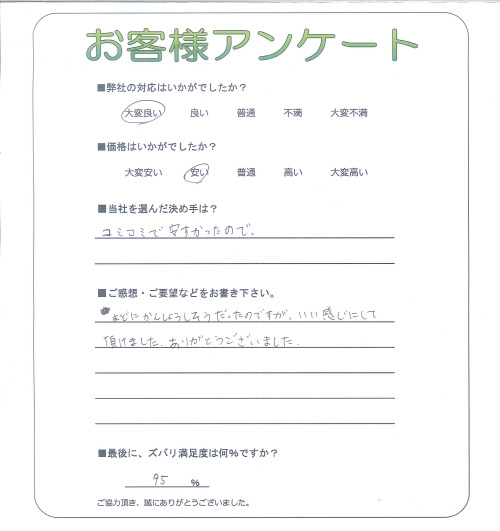 お客様アンケート
■弊社の対応はいかがでしたか？
大変良い 良い 普通 不満 大変不満
■価格はいかがでしたか？
大変安い 安い 普通 高い 大変高い
■当社を選んだ決め手は？
コミコミで安すかったので。
■ご感想・ご要望などをお書き下さい。
かんしょうしそうだったのですが、いい感じにして
頂けました。ありがとうございました。
■最後に、ズバリ満足度は何%ですか？
95 %
ご協力頂き、誠にありがとうございました。